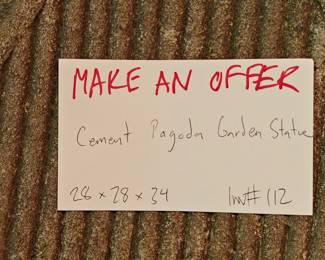 MAKE AN OFFER
Cement Pagoda Garden Statue
28 x 28 x 34 Inv# 112